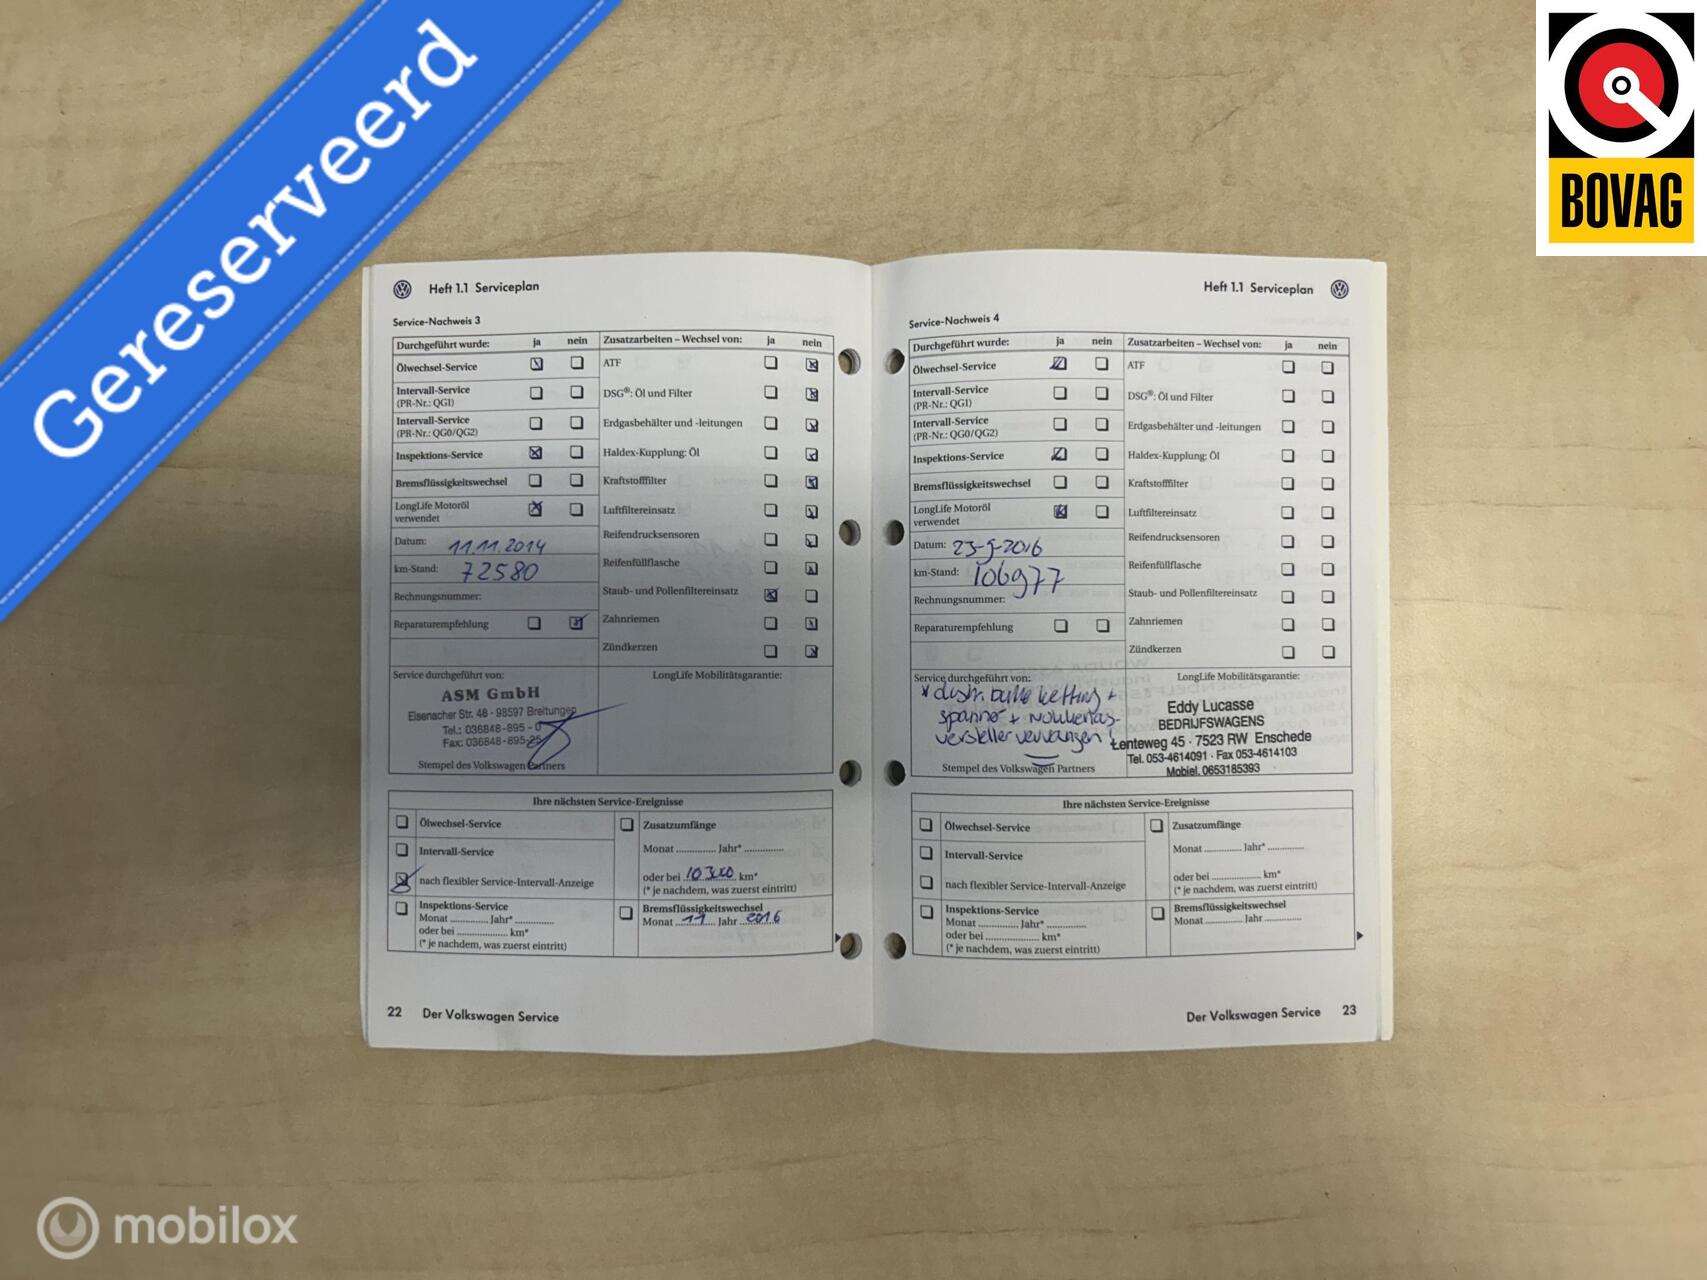 Gereserveerd
BOVAG
Heft 1.1 Serviceplan
Service-Nachweis 3
Durchgeführt wurde: ja nein
Ölwechsel-Service
Intervall-Service
(PR-Nr.: QG1)
Intervall-Service
(PR-Nr.: QG0/QG2)
Inspektions-Service
Bremsflüssigkeitswechsel
LongLife Motoröl
verwendet
Datum: 11.11.2014
km-Stand: 72580
Rechnungsnummer:
Reparaturempfehlung
Zusatzarbeiten – Wechsel von: ja nein
ATF
DSG®: Öl und Filter
Erdgasbehälter und -leitungen
Haldex-Kupplung: Öl
Kraftstofffilter
Luftfiltereinsatz
Reifendrucksensoren
Reifenfüllflasche
Staub- und Pollenfiltereinsatz
Zahnriemen
Zündkerzen
Service durchgeführt von:
ASM GmbH
Eisenacher Str. 48 · 98597 Breitungen
Tel.: 036848-895 - 0
Fax: 036848-895-25
Stempel des Volkswagen Partners
LongLife Mobilitätsgarantie:
Ihre nächsten Service-Ereignisse
Ölwechsel-Service
Intervall-Service
nach flexibler Service-Intervall-Anzeige
Inspektions-Service
Monat ............. Jahr* .............
oder bei .................... km*
(* je nachdem, was zuerst eintritt)
Zusatzumfänge
Monat ............. Jahr* .............
oder bei km*
(* je nachdem, was zuerst eintritt)
Bremsflüssigkeitswechsel
Monat 11 Jahr 2016
22 Der Volkswagen Service
Heft 1.1 Serviceplan
Service-Nachweis 4
Durchgeführt wurde: ja nein
Ölwechsel-Service
Intervall-Service
(PR-Nr.: QG1)
Intervall-Service
(PR-Nr.: QG0/QG2)
Inspektions-Service
Bremsflüssigkeitswechsel
LongLife Motoröl
verwendet
Datum: 23-9-2016
km-Stand: 106977
Rechnungsnummer:
Reparaturempfehlung
Zusatzarbeiten – Wechsel von: ja nein
ATF
DSG®: Öl und Filter
Erdgasbehälter und -leitungen
Haldex-Kupplung: Öl
Kraftstofffilter
Luftfiltereinsatz
Reifendrucksensoren
Reifenfüllflasche
Staub- und Pollenfiltereinsatz
Zahnriemen
Zündkerzen
Service durchgeführt von:
* distr. ketting +
spanner + nokkenas-
versteller vervangen!
Stempel des Volkswagen Partners
LongLife Mobilitätsgarantie:
Eddy Lucasse
BEDRIJFSWAGENS
Lenteweg 45 · 7523 RW Enschede
Tel. 053-4614091 · Fax 053-4614103
Mobiel. 0653185393
Ihre nächsten Service-Ereignisse
Ölwechsel-Service
Intervall-Service
nach flexibler Service-Intervall-Anzeige
Inspektions-Service
Monat ............. Jahr* .............
oder bei .................... km*
(* je nachdem, was zuerst eintritt)
Zusatzumfänge
Monat ............. Jahr* .............
oder bei .................... km*
(* je nachdem, was zuerst eintritt)
Bremsflüssigkeitswechsel
Monat ............. Jahr .............
Der Volkswagen Service 23
mobilox